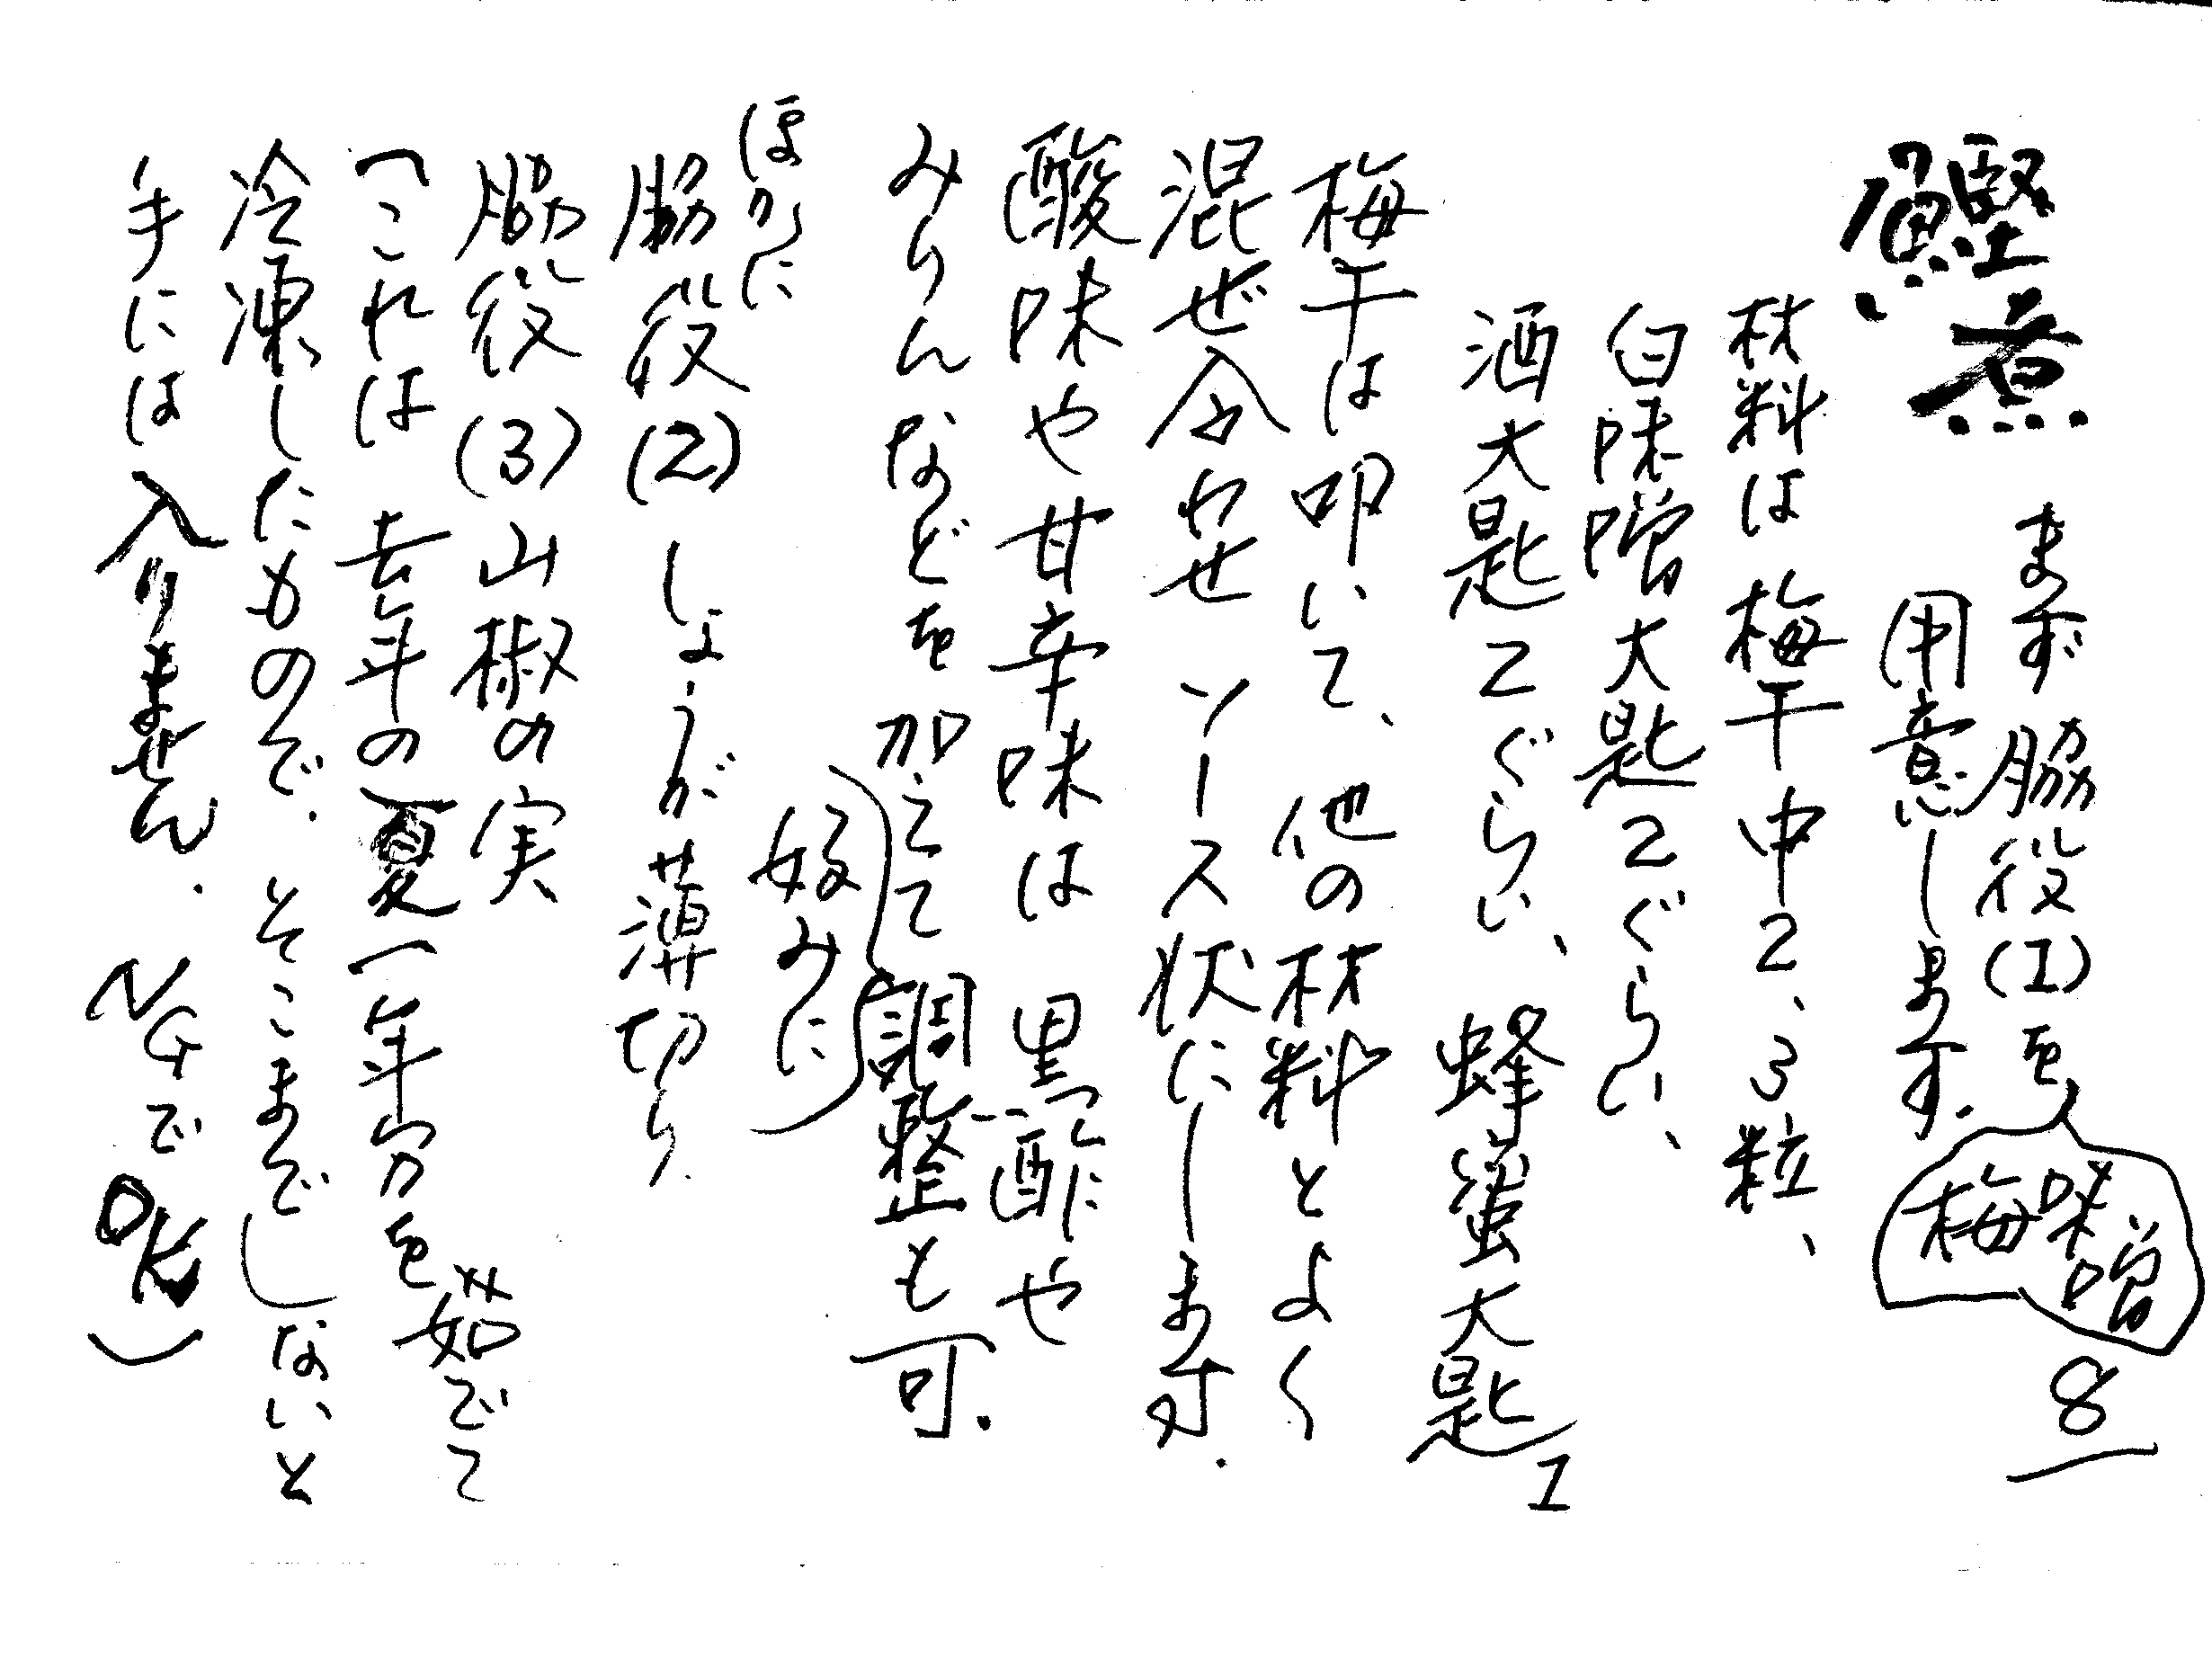 鰹煮
まず 脇役(1)を 梅味噌 8
用意します.
材料は 梅干中2、3粒、
白味噌大匙2ぐらい、
酒大匙2ぐらい、蜂蜜大匙1
梅干は叩いて、他の材料とよく
混ぜ合わせ ソース状にします.
酸味や甘辛味は 黒酢や
みりんなどを加えて調整も可.
好みに
ほかに
脇役(2) しょうが薄切り.
脇役(3)山椒の実
(これは 去年の夏一年分を茹でて
冷凍したもので. そこまでしないと
手には入りません. NGでOK)